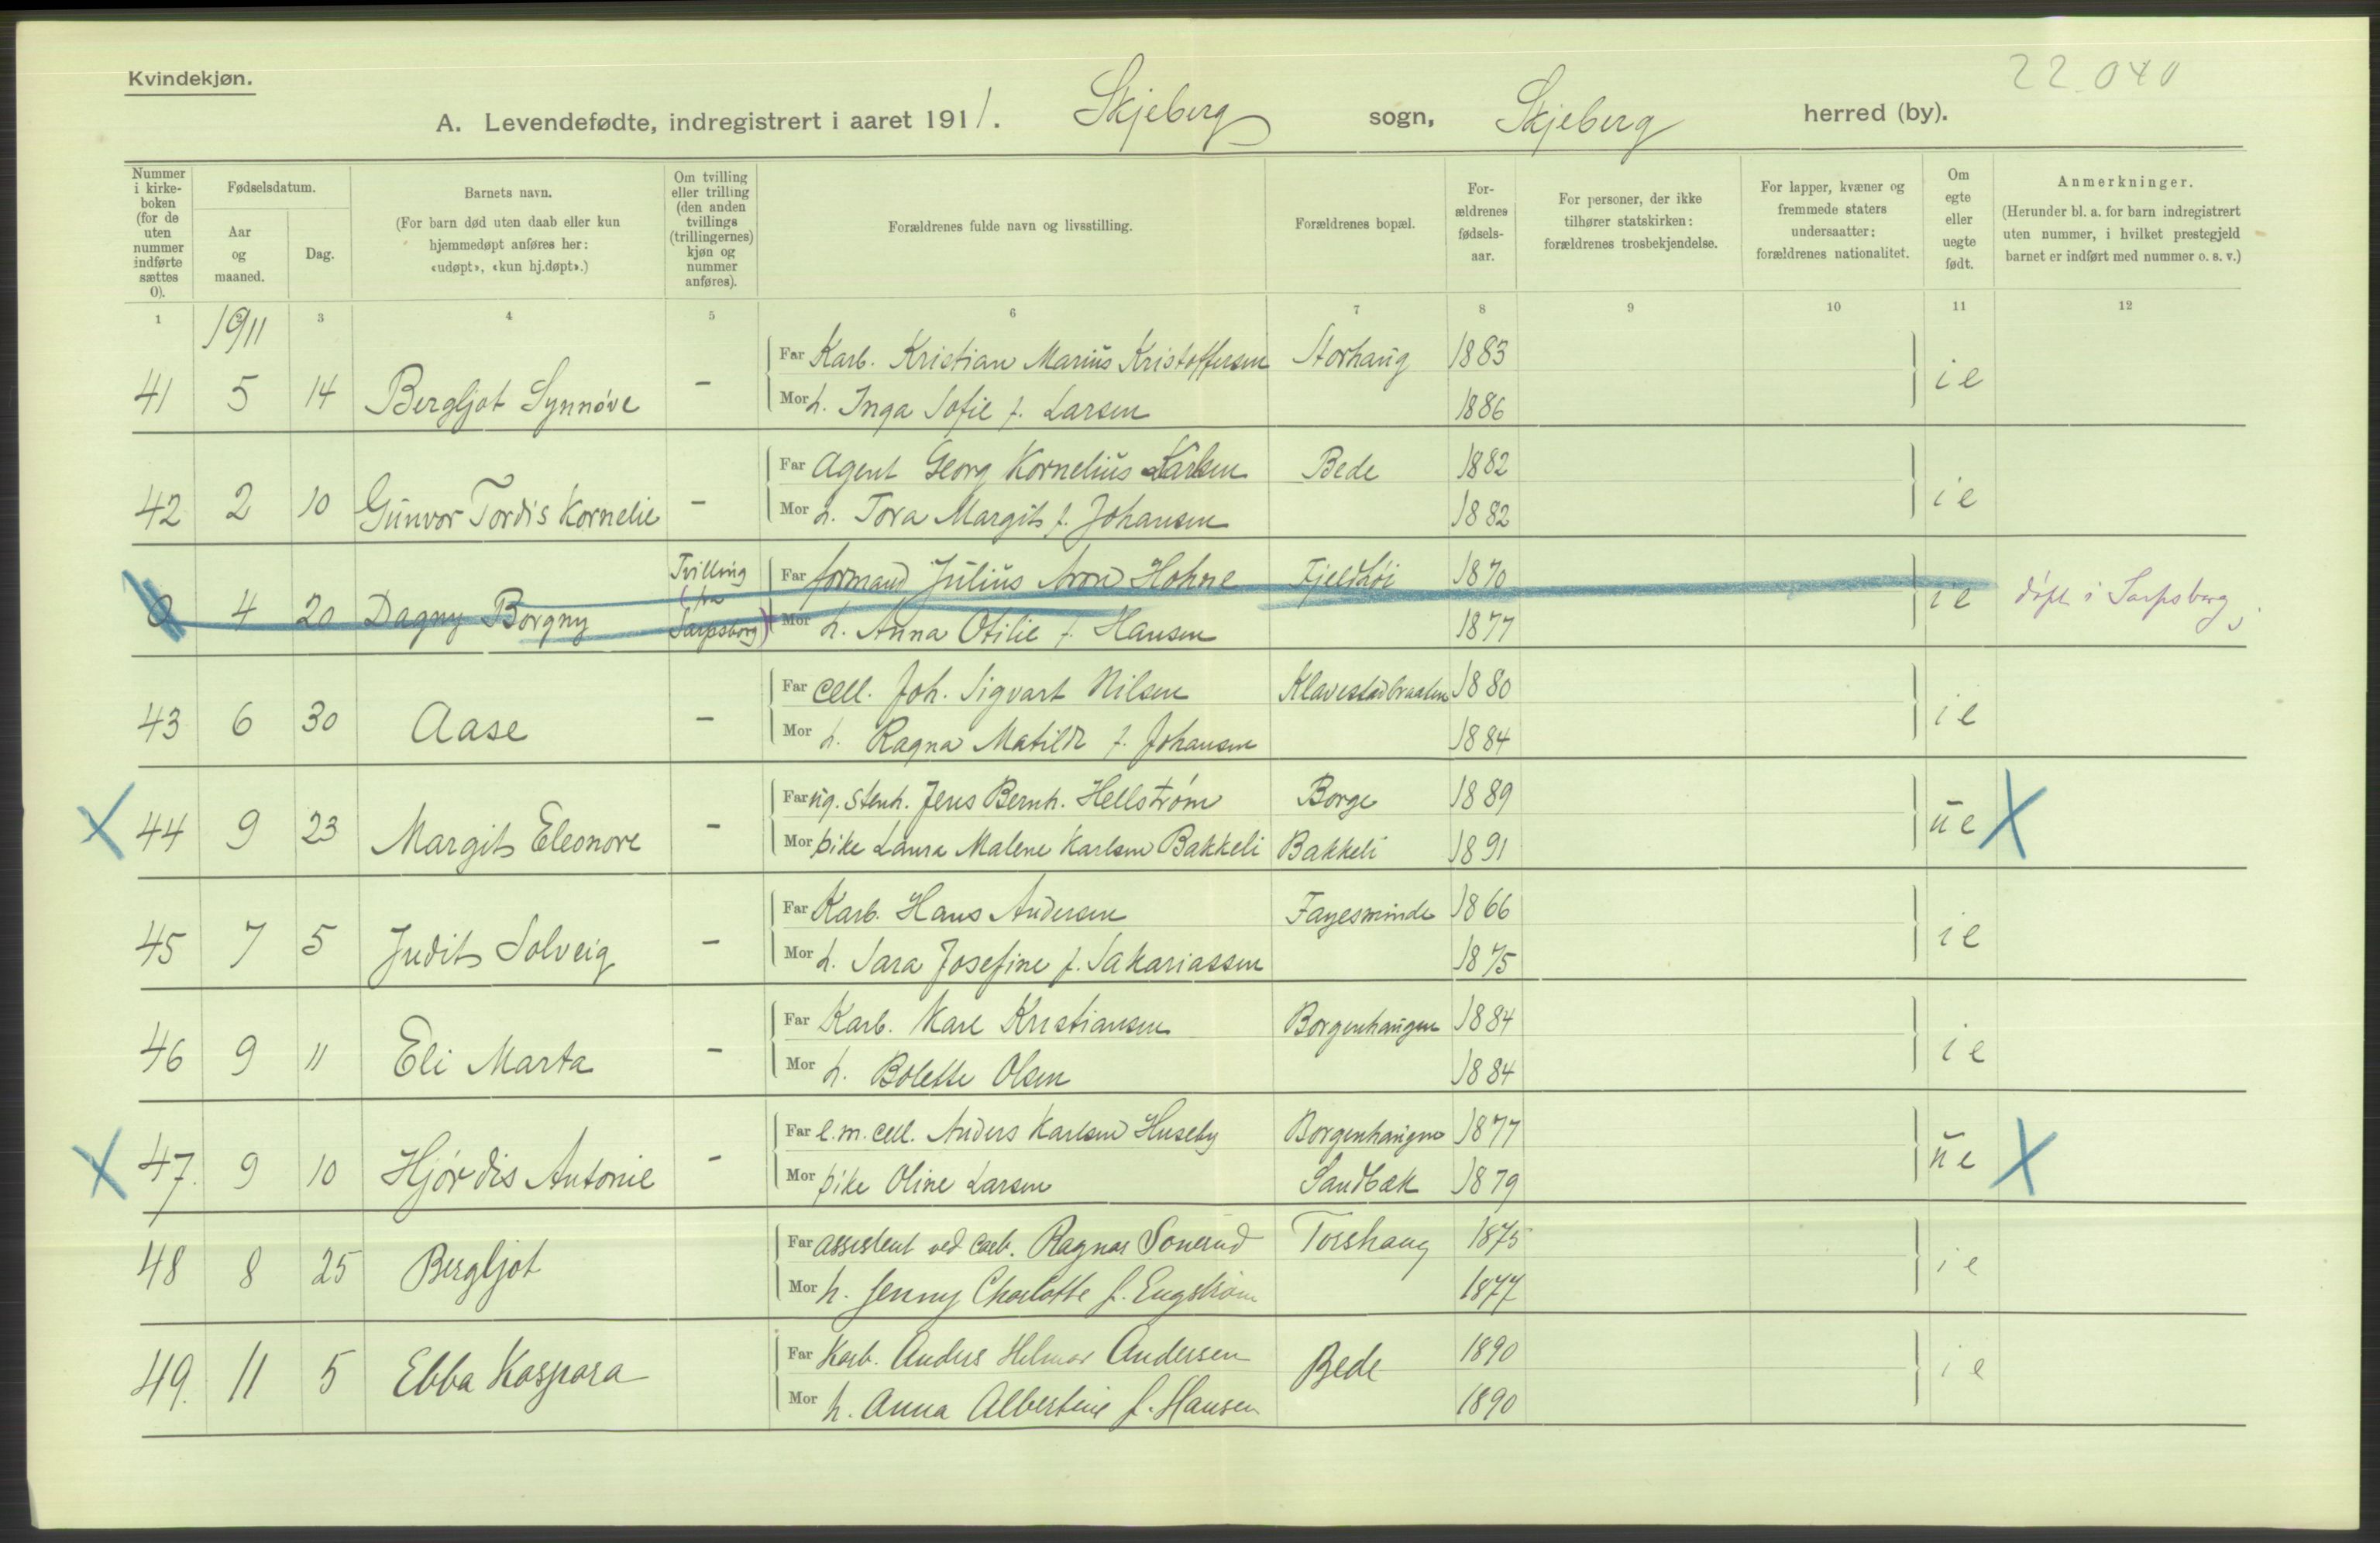 Kvindekjøn.
22.040
A. Levendefødte, indregistrert i aaret 1911. Skjeberg sogn, Skjeberg herred (by).
Nummer i kirke-boken (for de uten nummer indførte sættes 0).
Fødselsdatum.
Aar og maaned.
Dag.
Barnets navn.
(For barn død uten daab eller kun hjemmedøpt anføres her: «udøpt», «kun hj.døpt».)
Om tvilling eller trilling (den anden tvillings (trillingernes) kjøn og nummer anføres).
Forældrenes fulde navn og livsstilling.
Forældrenes bopæl.
For-ældrenes fødsels-aar.
For personer, der ikke tilhører statskirken: forældrenes trosbekjendelse.
For lapper, kvæner og fremmede staters undersaatter: forældrenes nationalitet.
Om egte eller uegte født.
Anmerkninger.
(Herunder bl. a. for barn indregistrert uten nummer, i hvilket prestegjeld barnet er indført med nummer o. s. v.)
1 2 3 4 5 6 7 8 9 10 11 12
1911
Far Karb. Kristian Marius Kristoffersen Storhaug 1883
41 5 14 Bergljot Synnøve - ie
Mor h. Inga Sofie f. Larsen 1886
Far Agent Georg Kornelius Karlsen Bede 1882
42 2 10 Gunvor Tordis Kornelie - ie
Mor h. Tora Margit f. Johansen 1882
Far formand Julius Aron Hohne Fjeldhøi 1870
0 4 20 Dagny Borgny Tvilling (fra Sarpsborg) ie døpt i Sarpsborg
Mor h. Anna Otilie f. Hansen 1877
Far cell. Joh. Sigvart Nilsen Klavestadbraaten 1880
43 6 30 Aase - ie
Mor h. Ragna Matilde f. Johansen 1884
Far ug. stenh. Jens Bernh. Hellstrøm Borge 1889
X 44 9 23 Margit Eleonore - ue X
Mor pike Laura Malene Karlsen Bakkeli Bakkeli 1891
Far Karb. Hans Andersen Fagesminde 1866
45 7 5 Judit Solveig - ie
Mor h. Sara Josefine f. Sakariassen 1875
Far Karb. Karl Kristiansen Borgenhaugen 1884
46 9 11 Eli Marta - ie
Mor h. Bolette Olsen 1884
Far e.m. cell. Anders Karlsen Huseby Borgenhaugen 1877
X 47. 9 10 Hjørdis Antonie - ue X
Mor pike Oline Larsen Sandbæk 1879
Far assistent ved carb. Ragnar Sonerud Torshaug 1875
48 8 25 Bergljot ie
Mor h. Jenny Charlotte f. Engstrøm 1877
Far Karb. Anders Helmar Andersen Bede 1890
49. 11 5 Ebba Kaspara ie
Mor h. Anna Albertine f. Hansen 1890